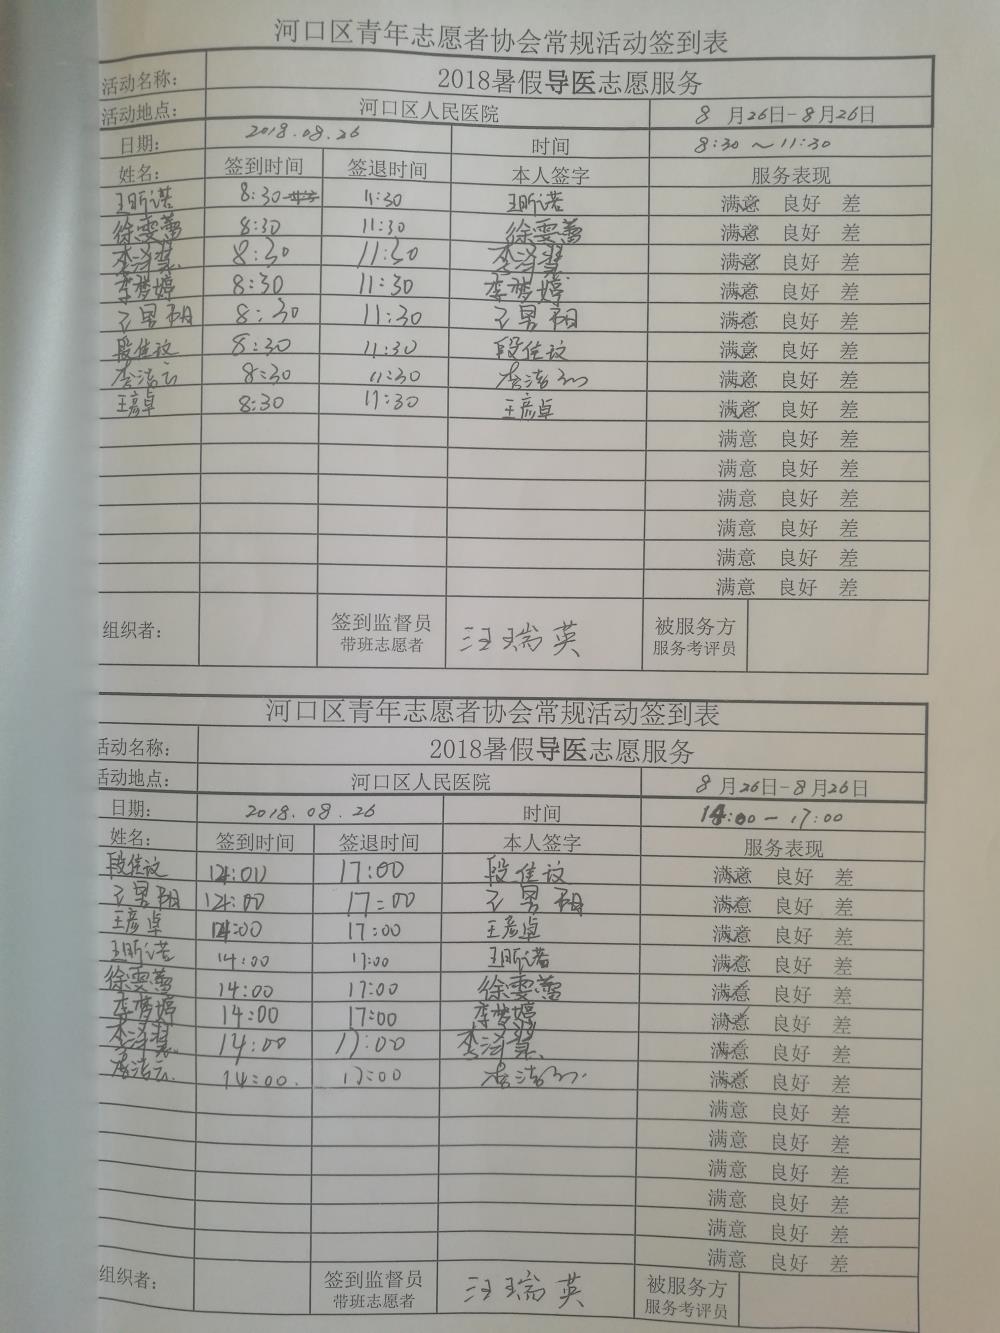 河口区青年志愿者协会常规活动签到表
活动名称： 2018暑假导医志愿服务
活动地点： 河口区人民医院 8月26日-8月26日
日期： 2018.08.26 时间 8:30～11:30
姓名： 签到时间 签退时间 本人签字 服务表现
王昕诺 8:30 11:30 王昕诺 满意 良好 差
徐雯蕾 8:30 11:30 徐雯蕾 满意 良好 差
李泽 8:30 11:30 李泽 满意 良好 差
李梦婷 8:30 11:30 李梦婷 满意 良好 差
王男阳 8:30 11:30 王男阳 满意 良好 差
段佳议 8:30 11:30 段佳议 满意 良好 差
8:30 11:30 满意 良好 差
王彦卓 8:30 11:30 王彦卓 满意 良好 差
满意 良好 差
满意 良好 差
满意 良好 差
满意 良好 差
满意 良好 差
满意 良好 差
组织者： 签到监督员 汪瑞英 被服务方
带班志愿者 服务考评员
河口区青年志愿者协会常规活动签到表
活动名称： 2018暑假导医志愿服务
活动地点： 河口区人民医院 8月26日-8月26日
日期： 2018.08.26 时间 14:00-17:00
姓名： 签到时间 签退时间 本人签字 服务表现
段佳议 14:00 17:00 段佳议 满意 良好 差
王男阳 14:00 17:00 王男阳 满意 良好 差
王彦卓 14:00 17:00 王彦卓 满意 良好 差
王昕诺 14:00 17:00 王昕诺 满意 良好 差
徐雯蕾 14:00 17:00 徐雯蕾 满意 良好 差
李梦婷 14:00 17:00 李梦婷 满意 良好 差
李泽 14:00 17:00 李泽 满意 良好 差
14:00. 17:00 满意 良好 差
满意 良好 差
满意 良好 差
满意 良好 差
满意 良好 差
满意 良好 差
满意 良好 差
组织者： 签到监督员 汪瑞英 被服务方
带班志愿者 服务考评员